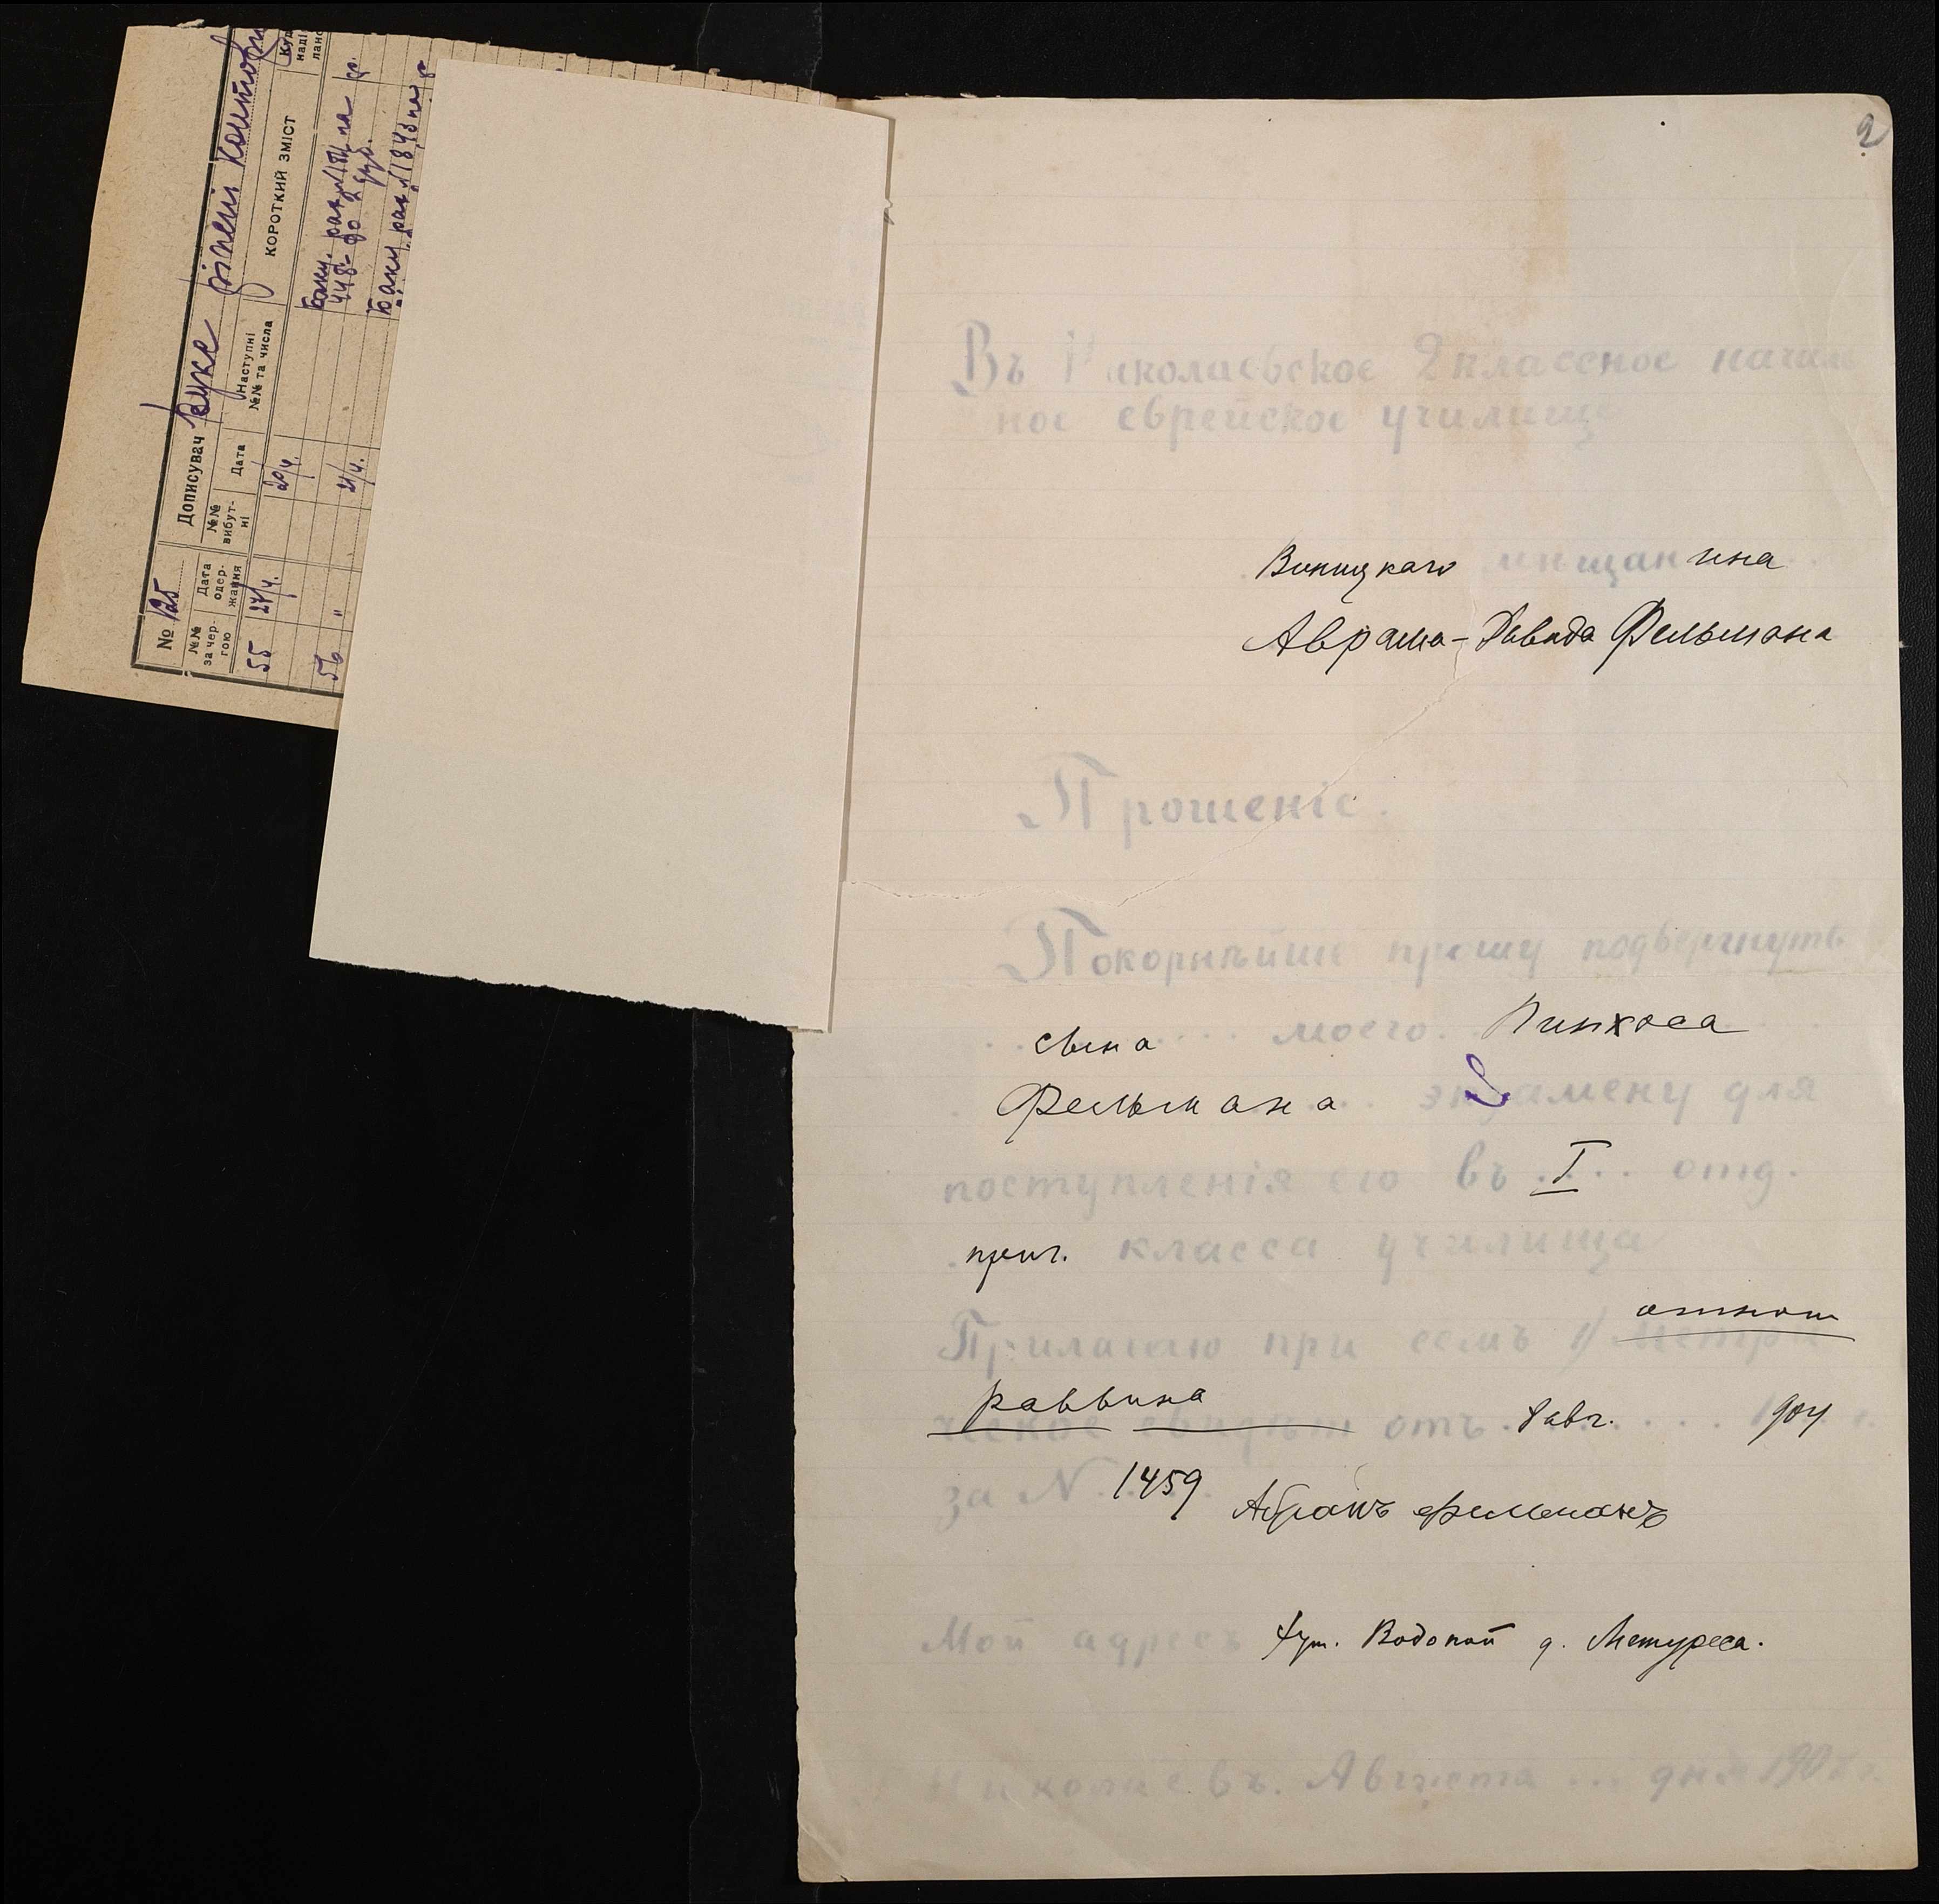 № 125 Дописувач
№№ за чергою
Дата одержання
№№ вибутні
Дата
Наступні №№ та числа
КОРОТКИЙ ЗМІСТ
55 27/4. 20/4.
56 " 21/4.
2
Въ Николаевское 2 классное началь
ное еврейское училище
Виницкаго мѣщанина
Аврама-Давида Фельмана
Прошеніе.
Покорнѣйше прошу подвергнуть
сына моего Пинхоса
Фельмана экзамену для
поступленія его въ I отд.
приг. класса училища
Прилагаю при семъ 1/ метри отнош
ческое свидѣт раввина отъ 8 авг. 1904 г.
за N 1459 Абрамъ Фельманъ
Мой адресъ Хут. Водопой д.
г. Николаевъ. Августа ... дня 190